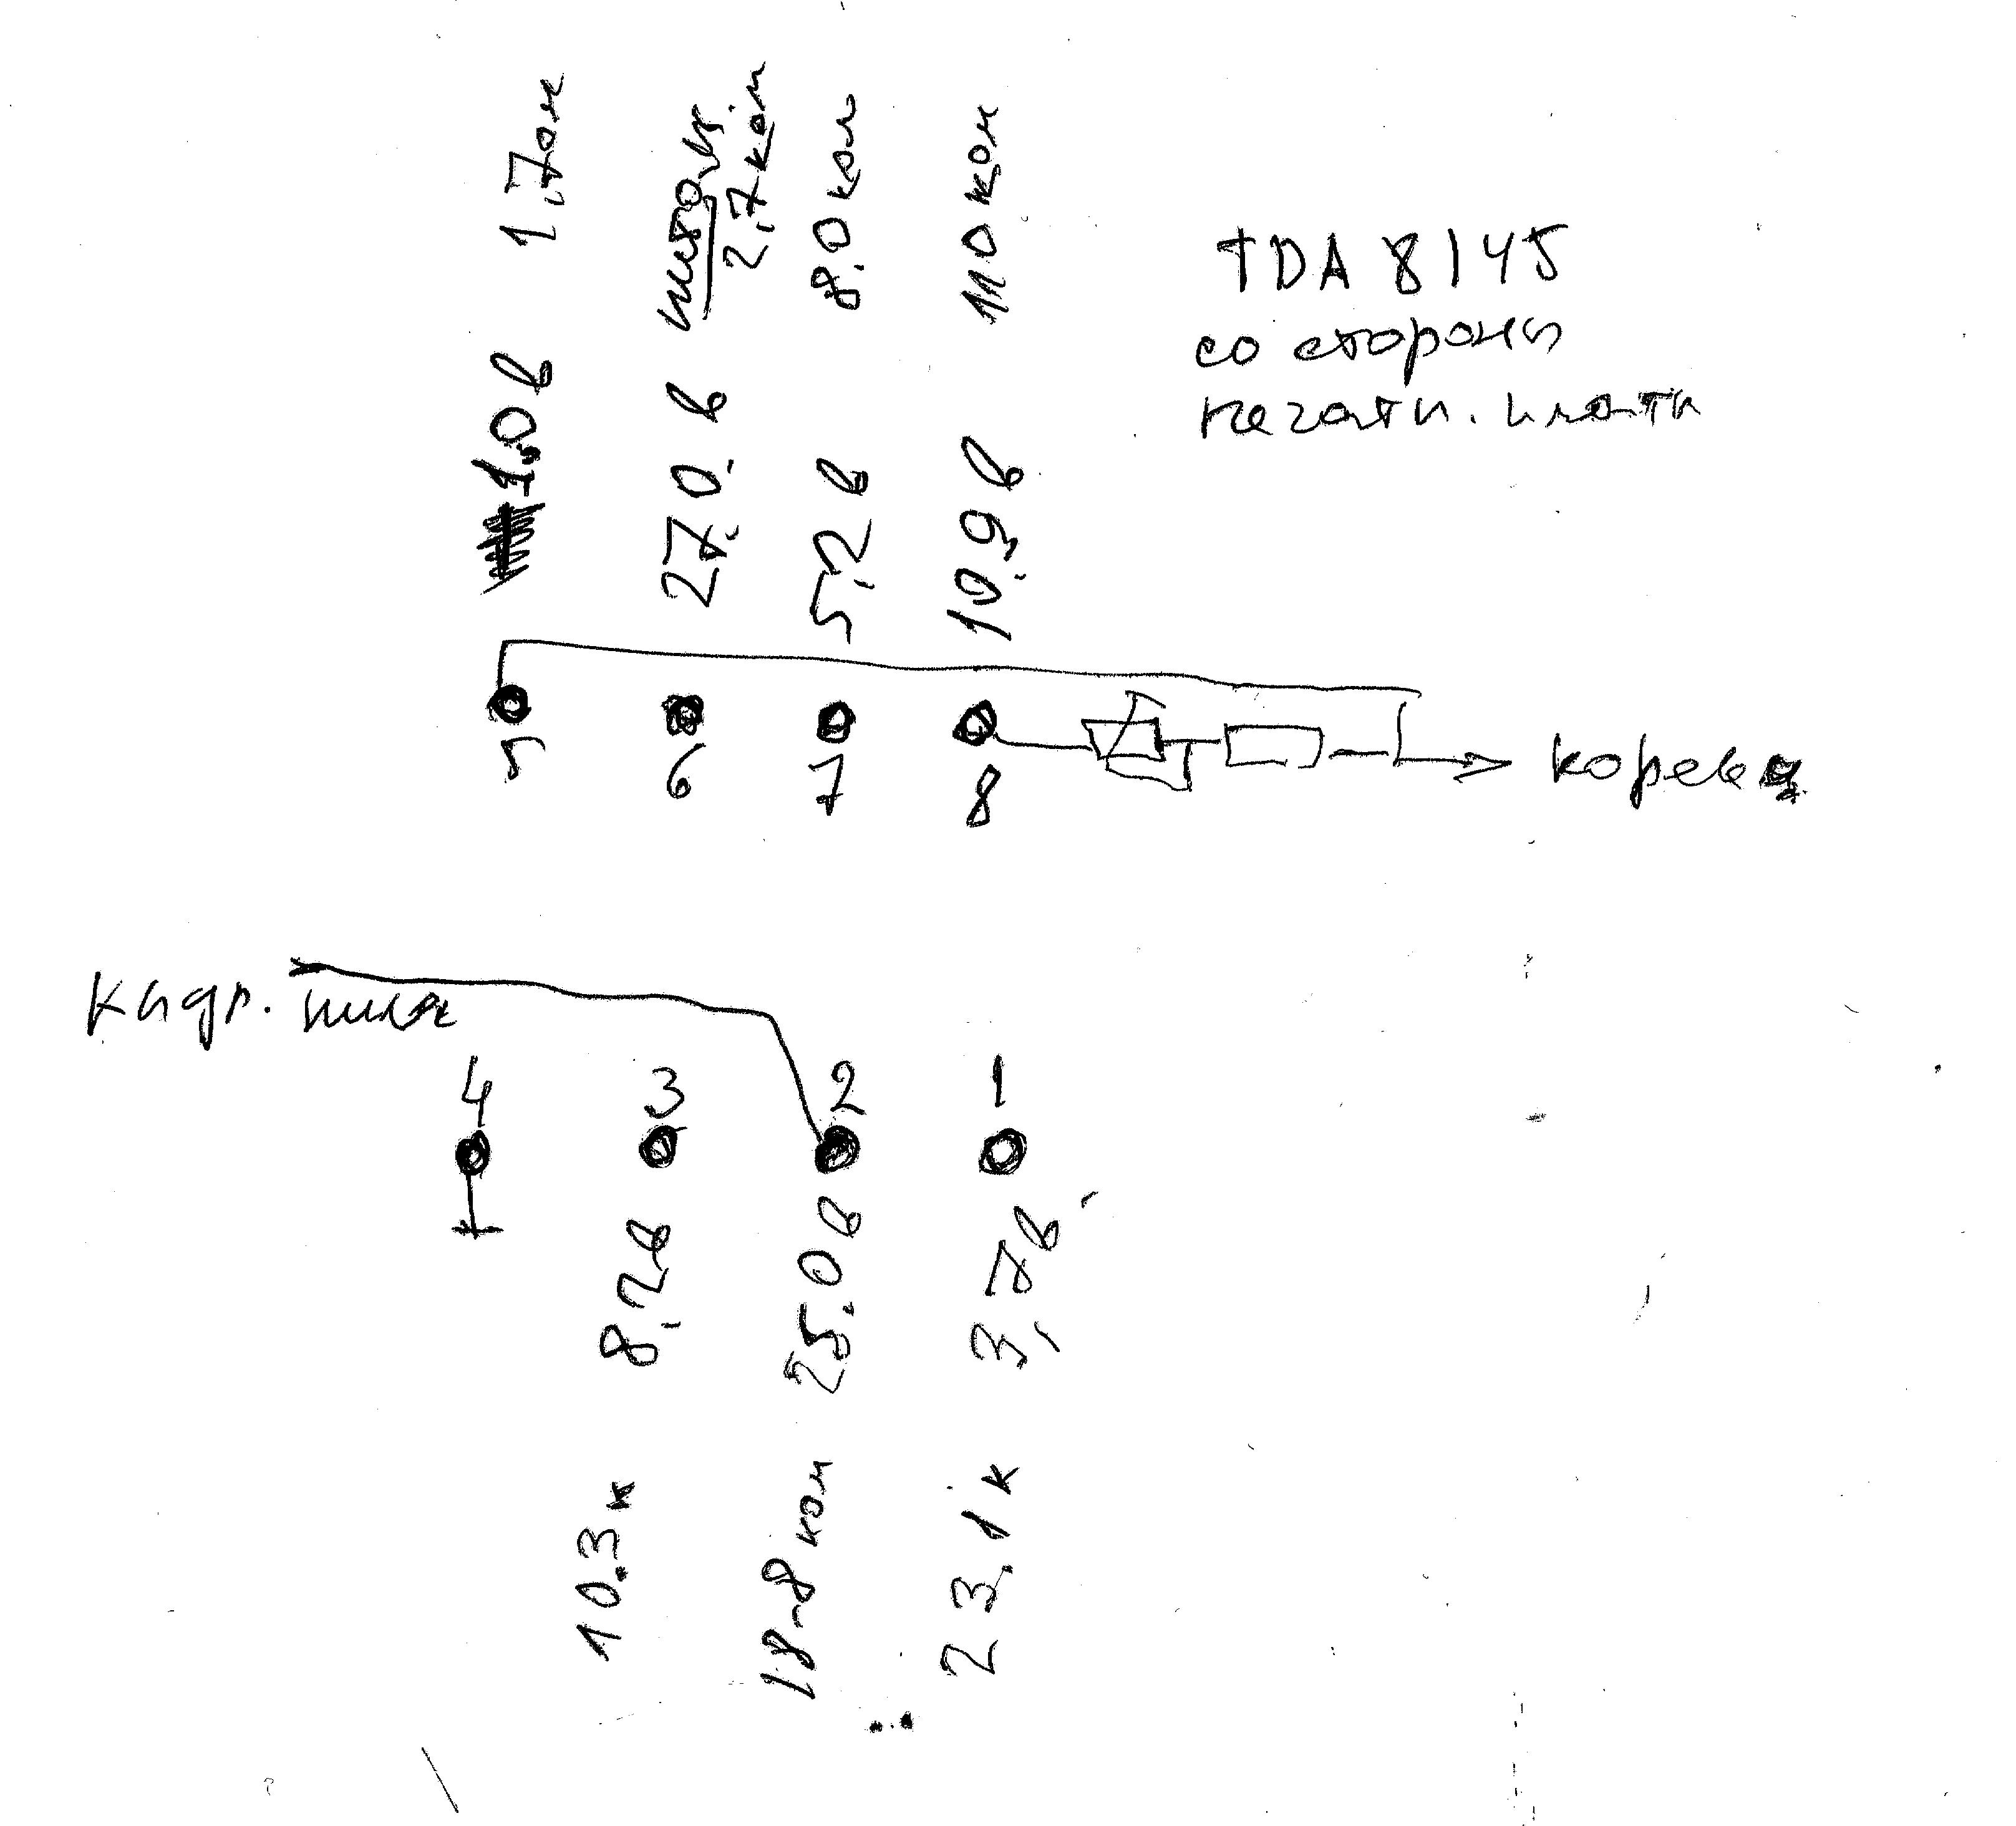 1,7 ом
2,7 ком
8.0 ком
110 ком
TDA 8145
со стороны
печатн. платы
1,0 в
27.0 в
5,2 в
10,9 в
5
6
7
8
кадр. пила
4
3
2
1
8,2 в
25.0 в
3,7 в
10.3 к
18.8 ком
23.1 к